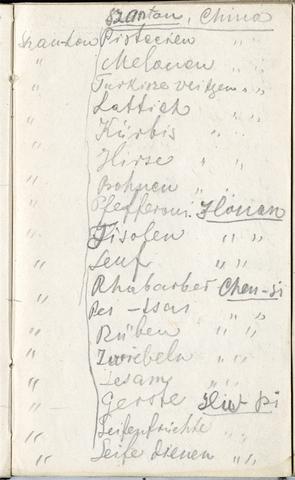 Szantan, China
Szantan Pistazien " "
" Melonen " "
" Türkisze weitzen " "
" Lattich " "
" Kürbis " "
" Hirse " "
" Bohnen " "
" Pfefferoni Honan
" Fisolen " "
" Senf " "
" Rhabarber Chen-si
" Pe-tsai " "
" Rüben " "
" Zwiebeln " "
" Sesam " "
" Gerste Hiu pi
" Seifenfrichte " "
" Seife dienen " "